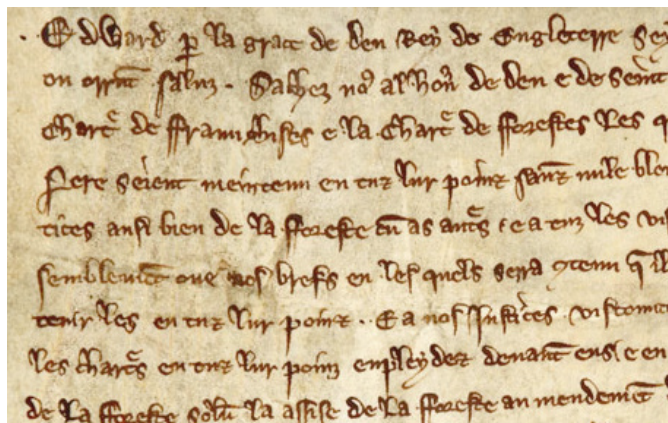 Edward p la grace de deu Rey de Engleterre Sey
on orrũt saluz . Sachez no9 al hon̄ de deu e de seint
Chartr̄ de ffraunchises e la Chartr̄ de fforestes les q
Pere seient meintenu en tuz lur poinz sanz nule blem
tices ausi bien de la fforeste cū as autr̄s e a tuz les vis
semblemēt oue nos brefs en les quels serra 9tenu q̄ il
tenir les en tuz lur poinz . E a nos Justices viscontes
les Chartr̄s en tuz lur poinz enpleydez deuaunt eus e en
de la fforeste solū la assise de la fforeste amendemēt